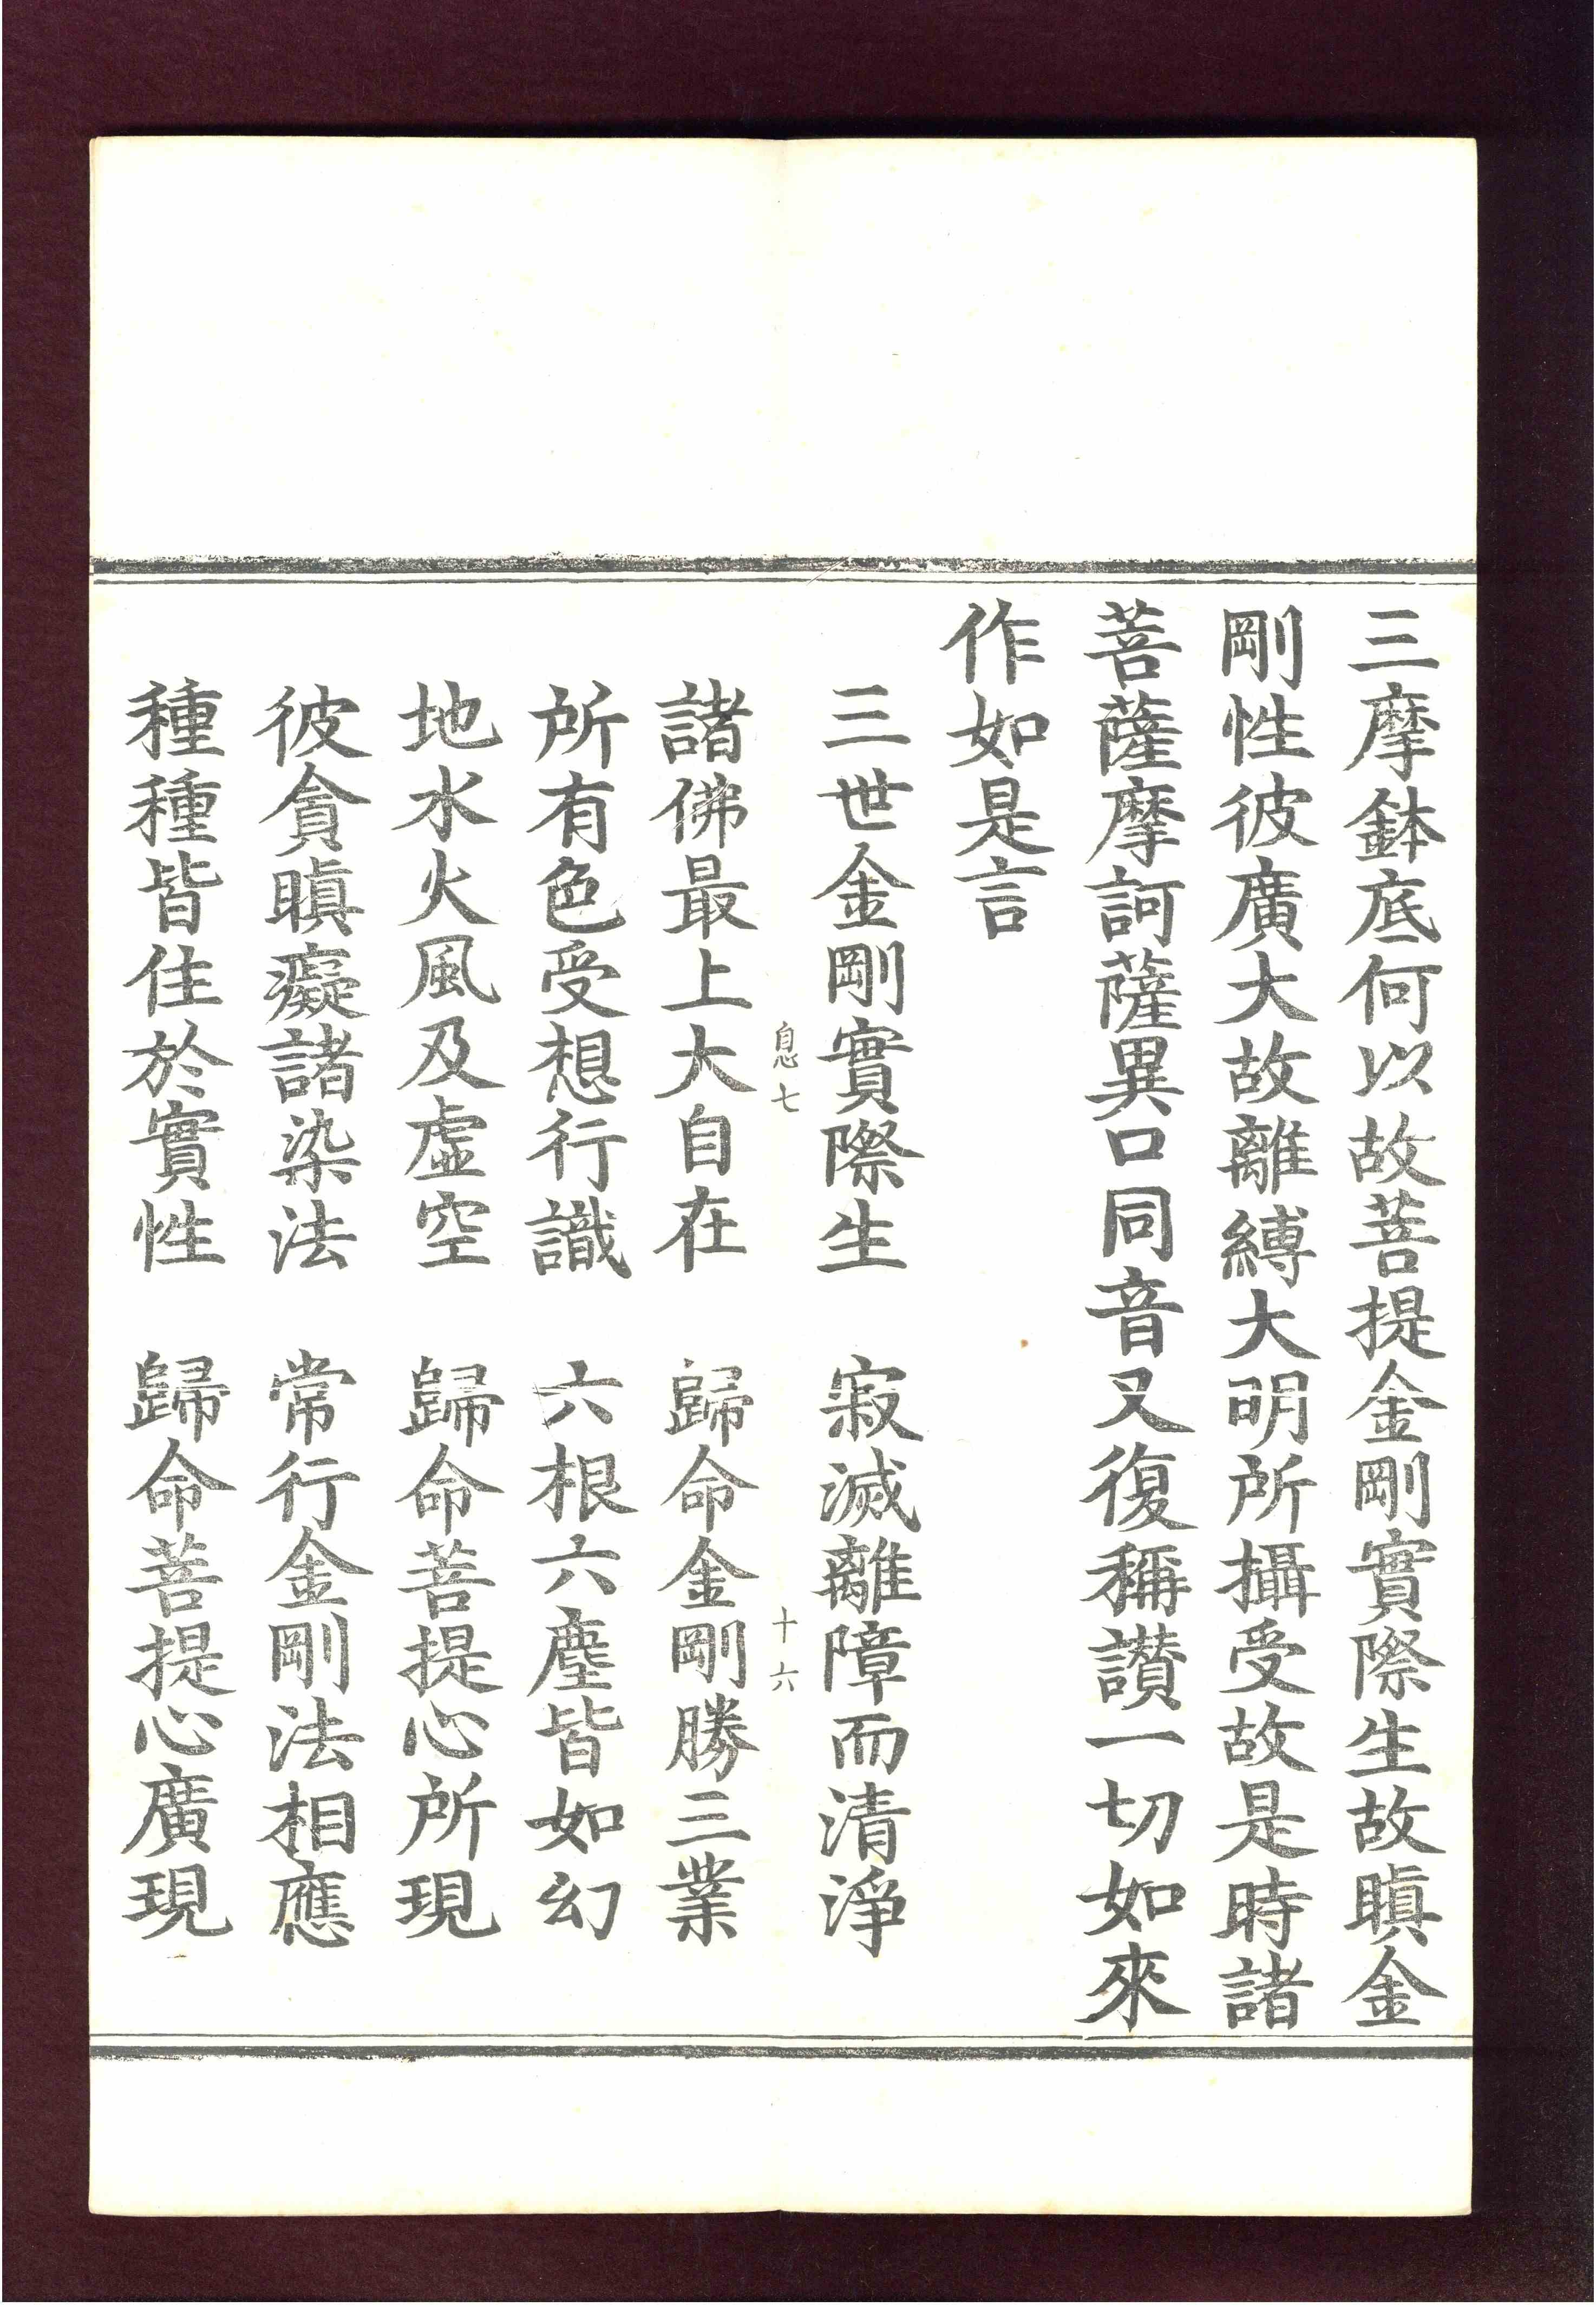 三摩鉢底何以故菩提金剛實際生故瞋金
剛性彼廣大故離縛大明所攝受故是時諸
菩薩摩訶薩異口同音又復稱讃一切如來
作如是言
三世金剛實際生　寂滅離障而清淨
息七　十六
諸佛最上大自在　歸命金剛勝三業
所有色受想行識　六根六塵皆如幻
地水火風及虛空　歸命菩提心所現
彼貪瞋癡諸染法　常行金剛法相應
種種皆住於實性　歸命菩提心廣現